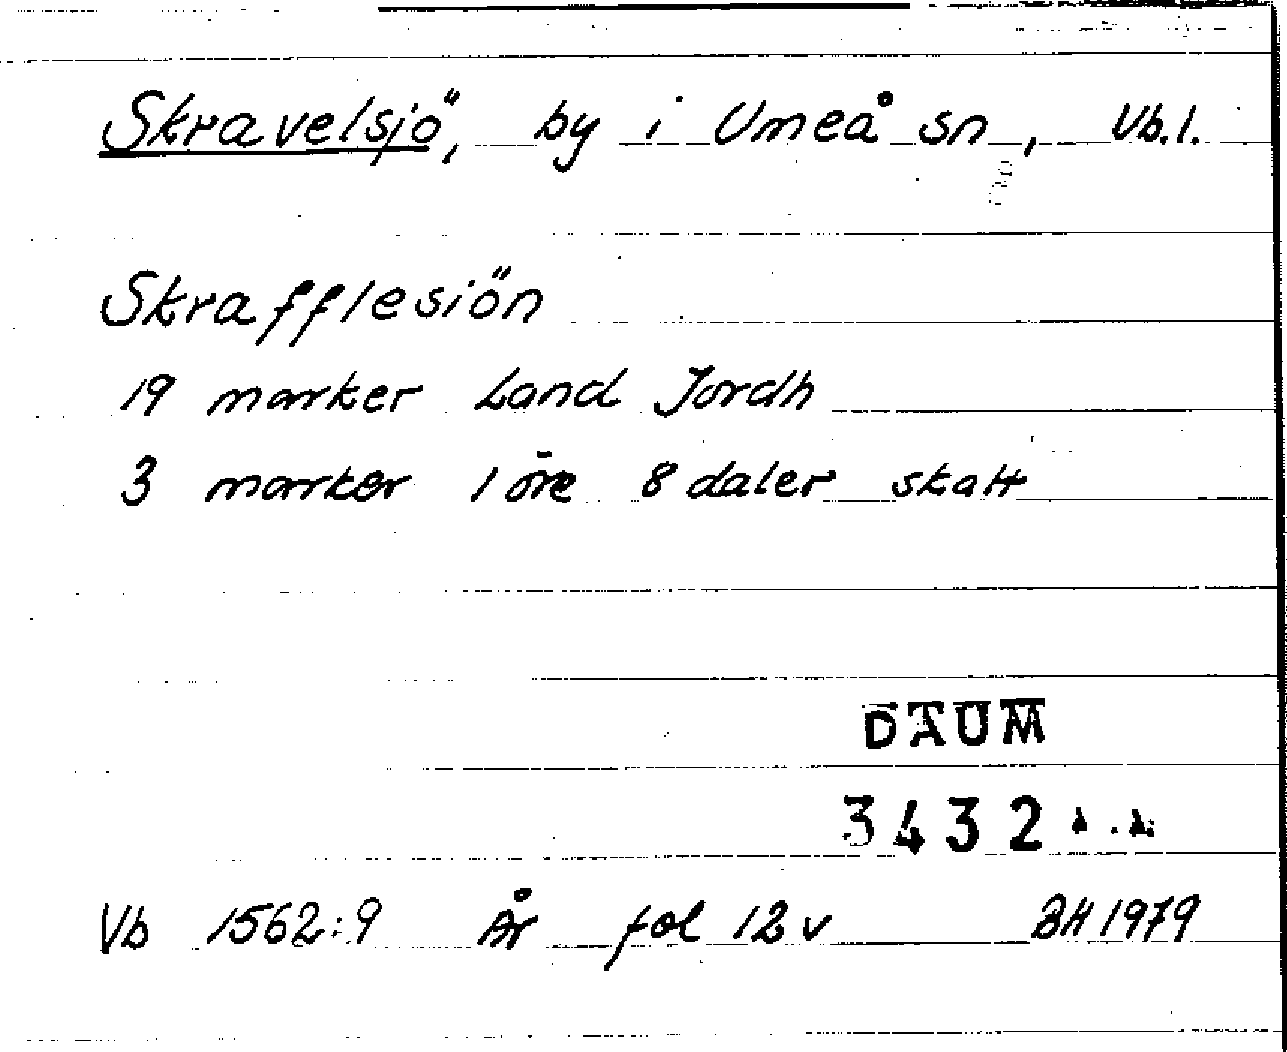 Skravelsjö, by i Umeå sn, Vb.l.
Skrafflesiön
19 marker Land Jordh
3 marker 1 öre 8 daler skatt
DAUM
3432
Vb 1562:9 År fol 12 v BH 1979